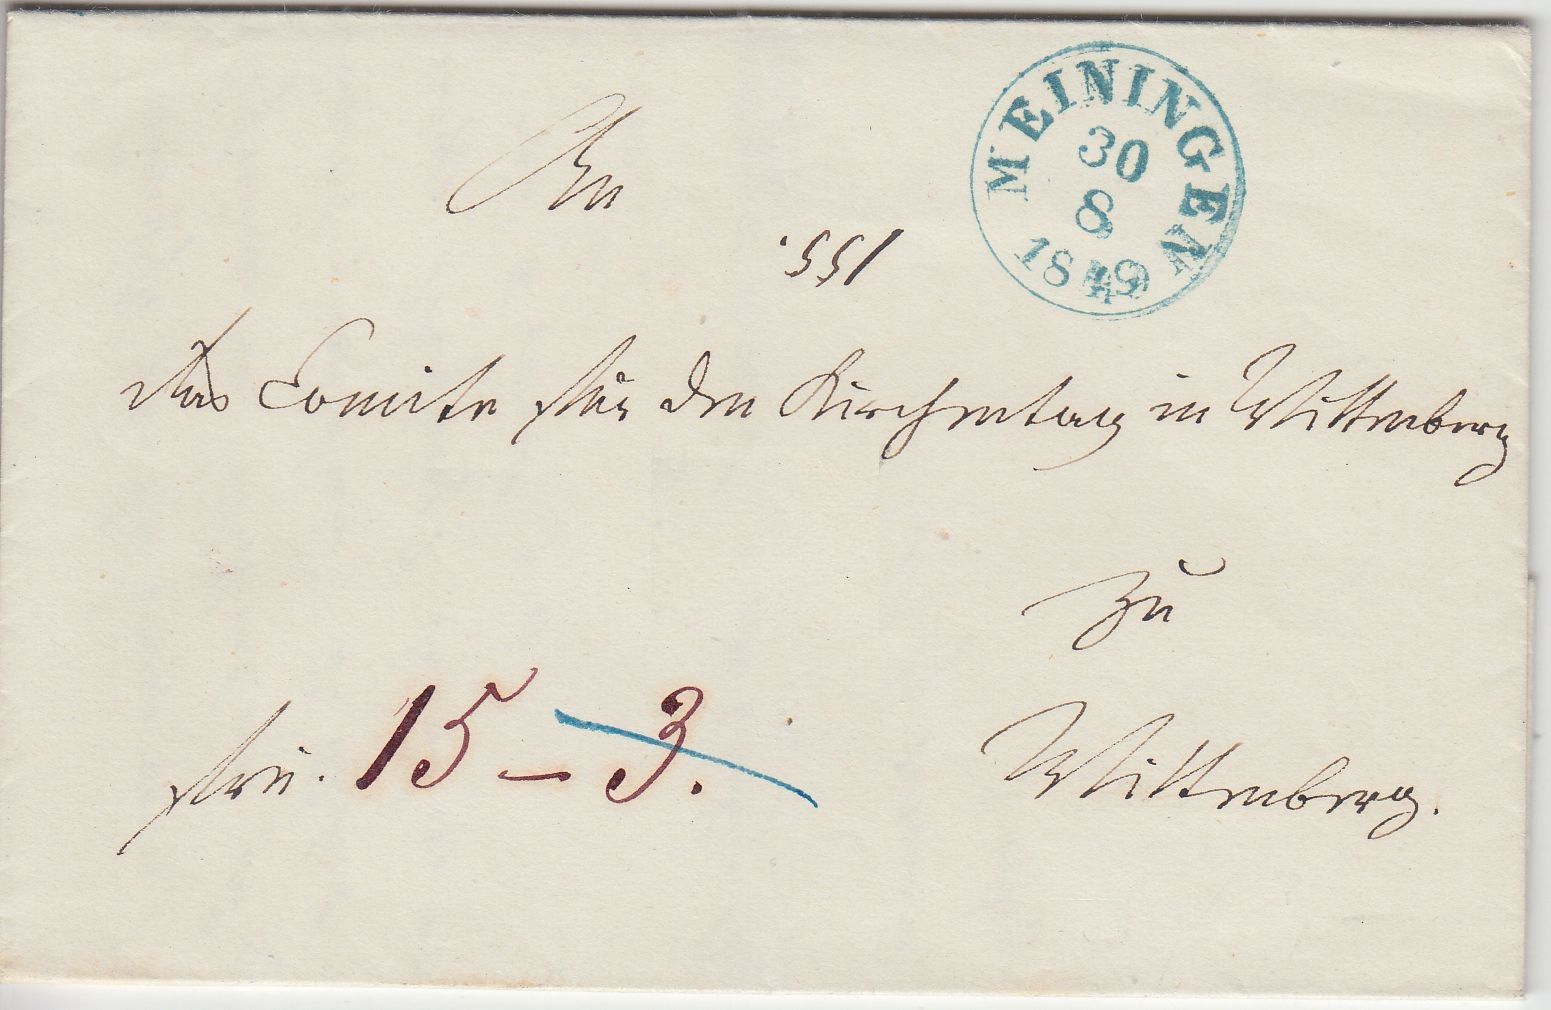 MEININGEN
30
8
1849
An
das Comite für den Kirchentag in Wittenberg
zu
Wittenberg.
15 – 3.